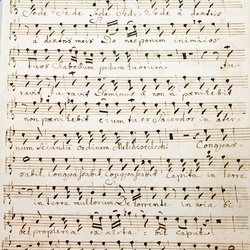 Sede Sede Sede Sede Sede à dextris
dextris meis Do nec ponam inimicos
tuos Scabellum pedum tuorum. Ju=
ravit Ju ravit Dominus et non pœnitebit
non pœnitebit tu es Sacerdos in æter=
num Secundum Ordinem Melchisedech. Conquas=
sabit Conquassabit Conquassabit Capita in terra
in terra multorum De torrente in via bi
bet propterea ex al ta bit caput